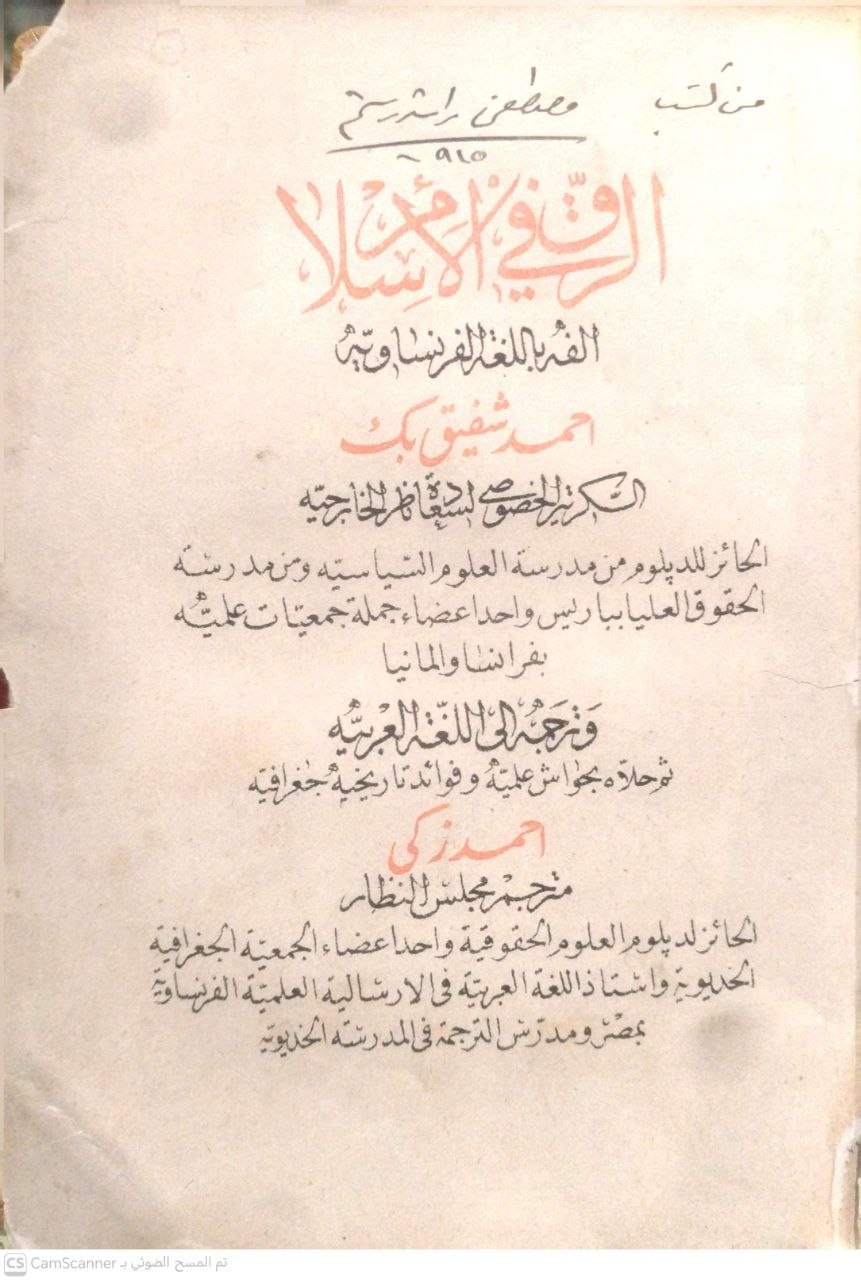 من كتب مصطفى راشد رستم
٩١٥
الرق في الإسلام
الفه باللغة الفرنساوية
احمد شفيق بك
السكرتير الخصوصي لسعادة ناظر الخارجية
الحائز للدبلوم من مدرسة العلوم السياسية ومن مدرسة
الحقوق العليا بباريس واحد اعضاء جملة جمعيات علمية
بفرانسا والمانيا
وَتَرجَمَهُ الى اللغة العربية
ثم حلاه بحواش علمية وفوائد تاريخية جغرافية
احمد زكي
مترجم مجلس النظار
الحائز لدبلوم العلوم الحقوقية واحد اعضاء الجمعية الجغرافية
الخديوية واستاذ اللغة العربية في الارسالية العلمية الفرنساوية
بمصر ومدرس الترجمة في المدرسة الخديوية
CS CamScanner تم المسح الضوئي بـ